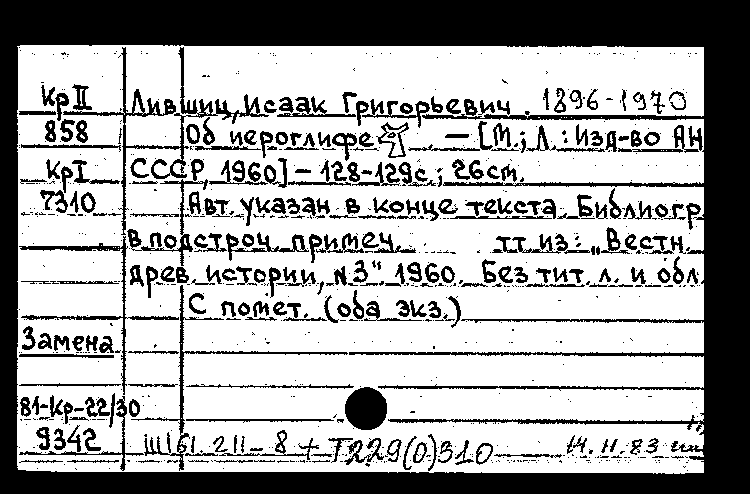 Кр II Лившиц, Исаак Григорьевич. 1896-1970
858 Об иероглифе . — [М.; Л.: Изд-во АН
Кр I СССР, 1960] – 128-129с.; 26см.
7310 Авт. указан в конце текста. Библиогр.
в подстроч. примеч. тт из: „Вестн.
древ. истории, №3" 1960. Без тит. л. и обл.
С помет. (оба экз.)
Замена
81-Кр-22/30
9342 Ш161.211-8 + Т229(0)310 14.11.83